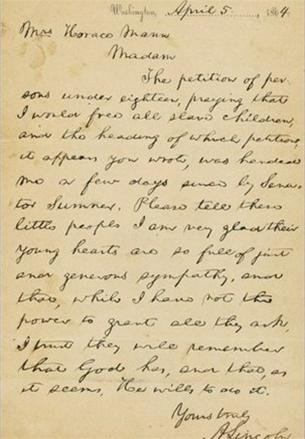 Washington, April 5, 1864.
Mrs Horace Mann
Madam
The petition of per-
sons under eighteen, praying that
I would free all slave children,
and the heading of which petition,
it appears you wrote, was handed
me a few days since by Sena-
tor Sumner. Please tell these
little people I am very glad their
young hearts are so full of just
and generous sympathy, and
that, while I have not the
power to grant all they ask,
I trust they will remember
that God has, and that as
it seems, He wills to do it.
Yours truly
A. Lincoln